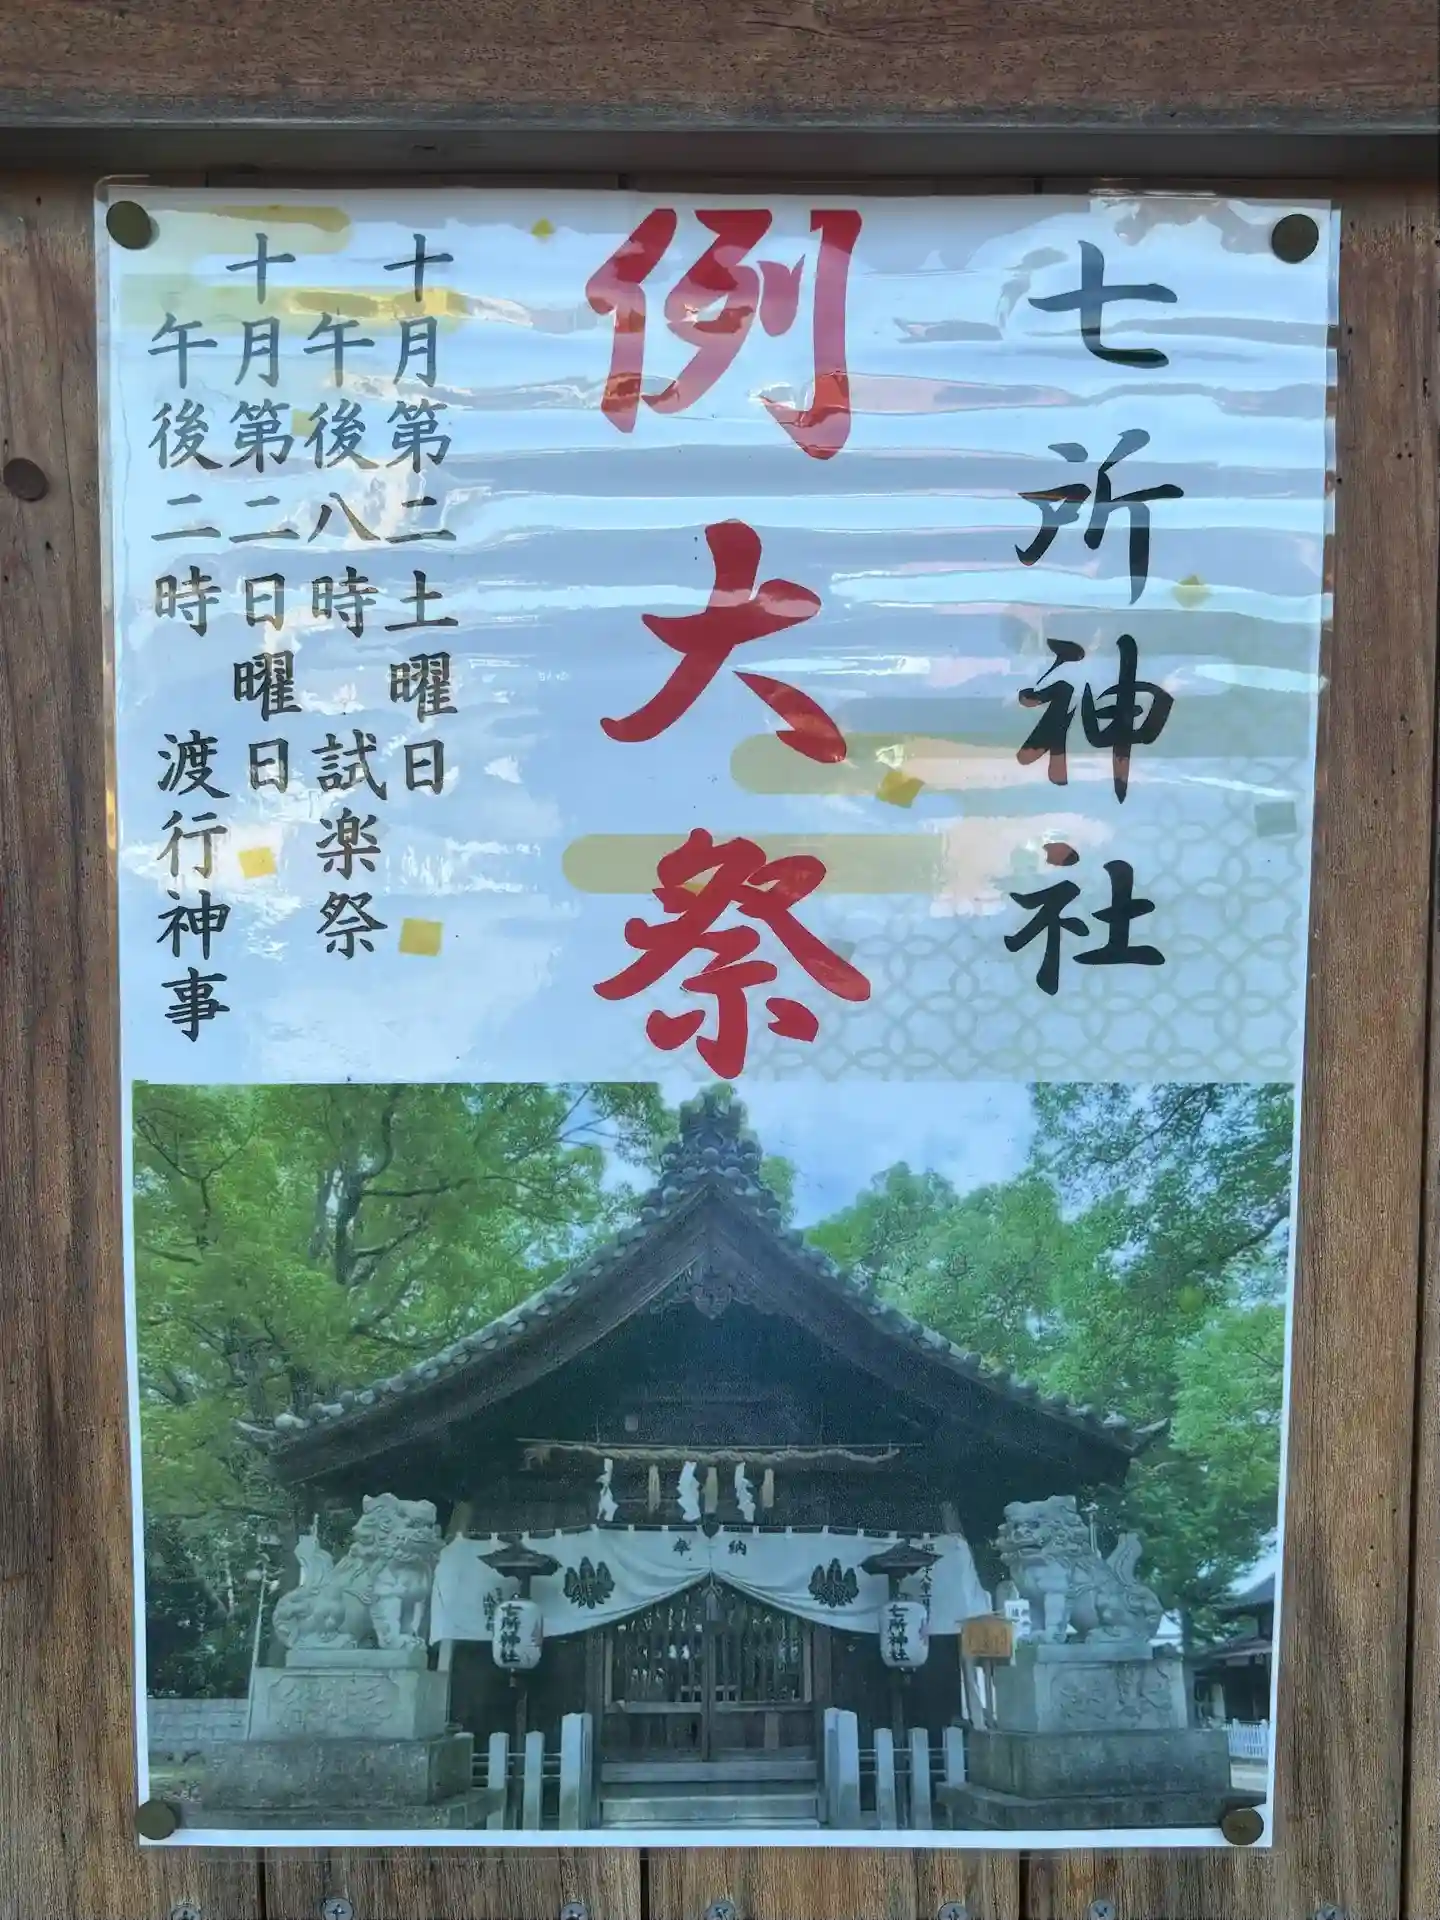 七所神社
例大祭
十月第二土曜日
午後八時 試楽祭
十月第二日曜日
午後二時 渡行神事
奉納
七所神社
七所神社